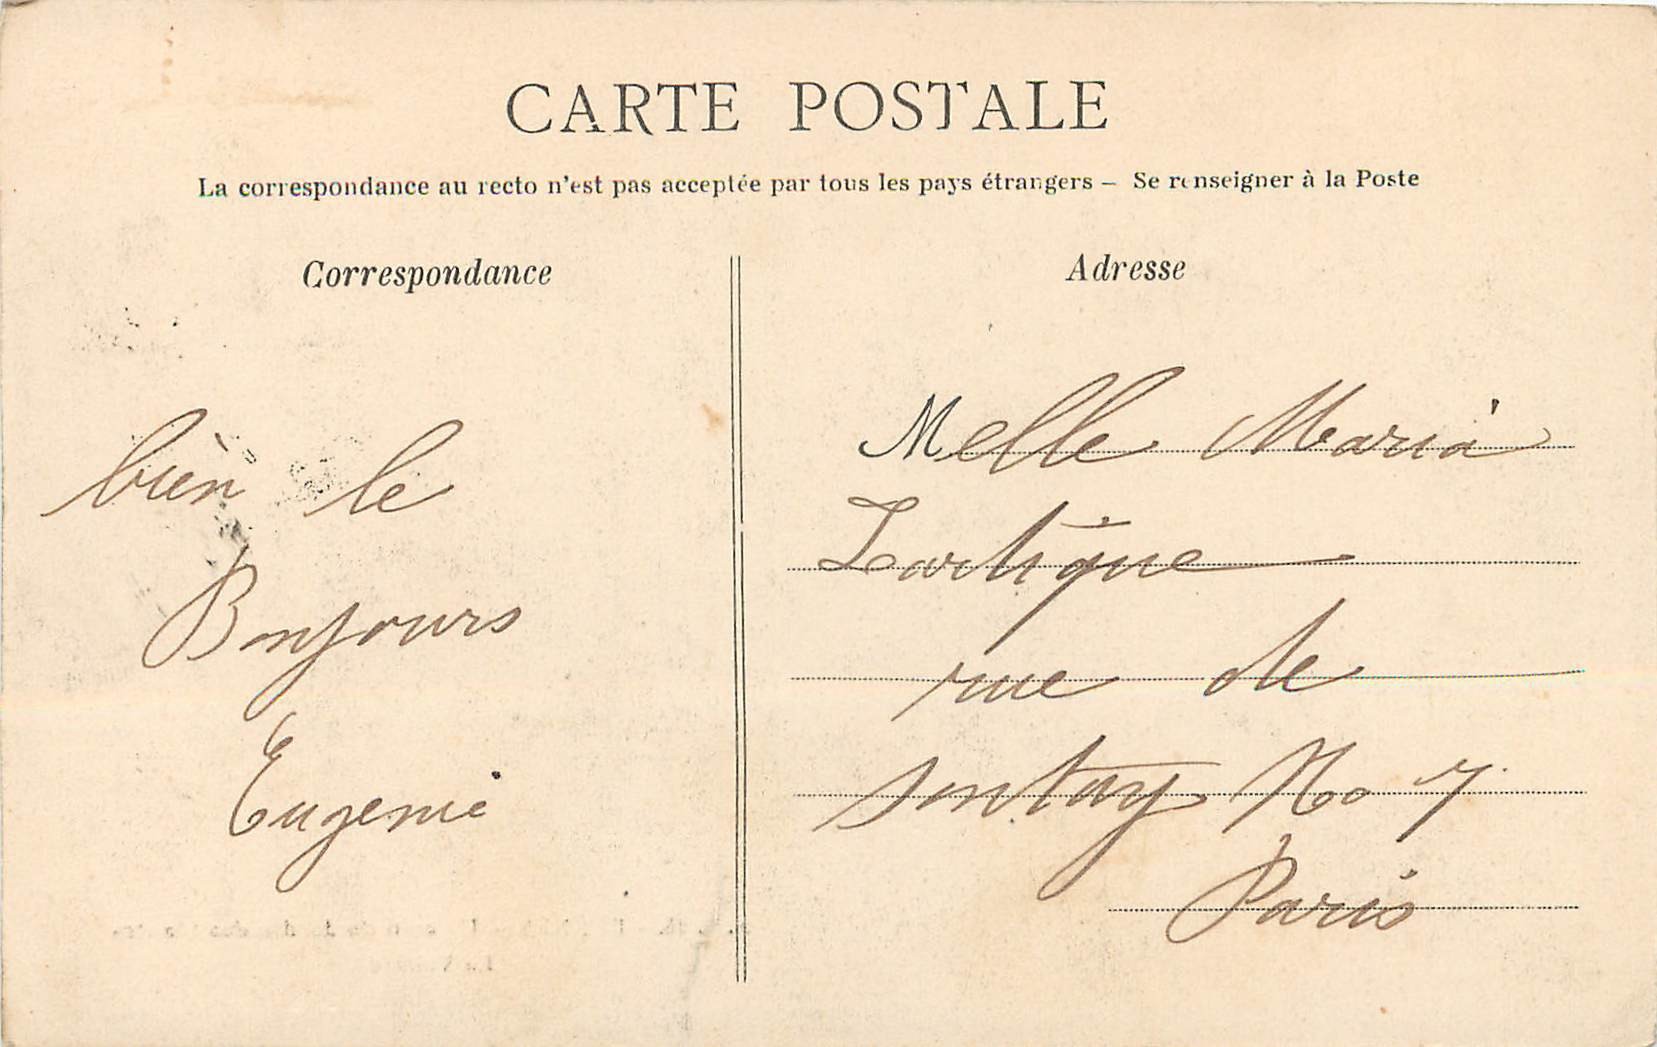 CARTE POSTALE
La correspondance au recto n'est pas acceptée par tous les pays étrangers – Se renseigner à la Poste
Correspondance
bien le
Bonjours
Eugenie
Adresse
Melle Maria
Lartigue
rue de
sontay No 7
Paris